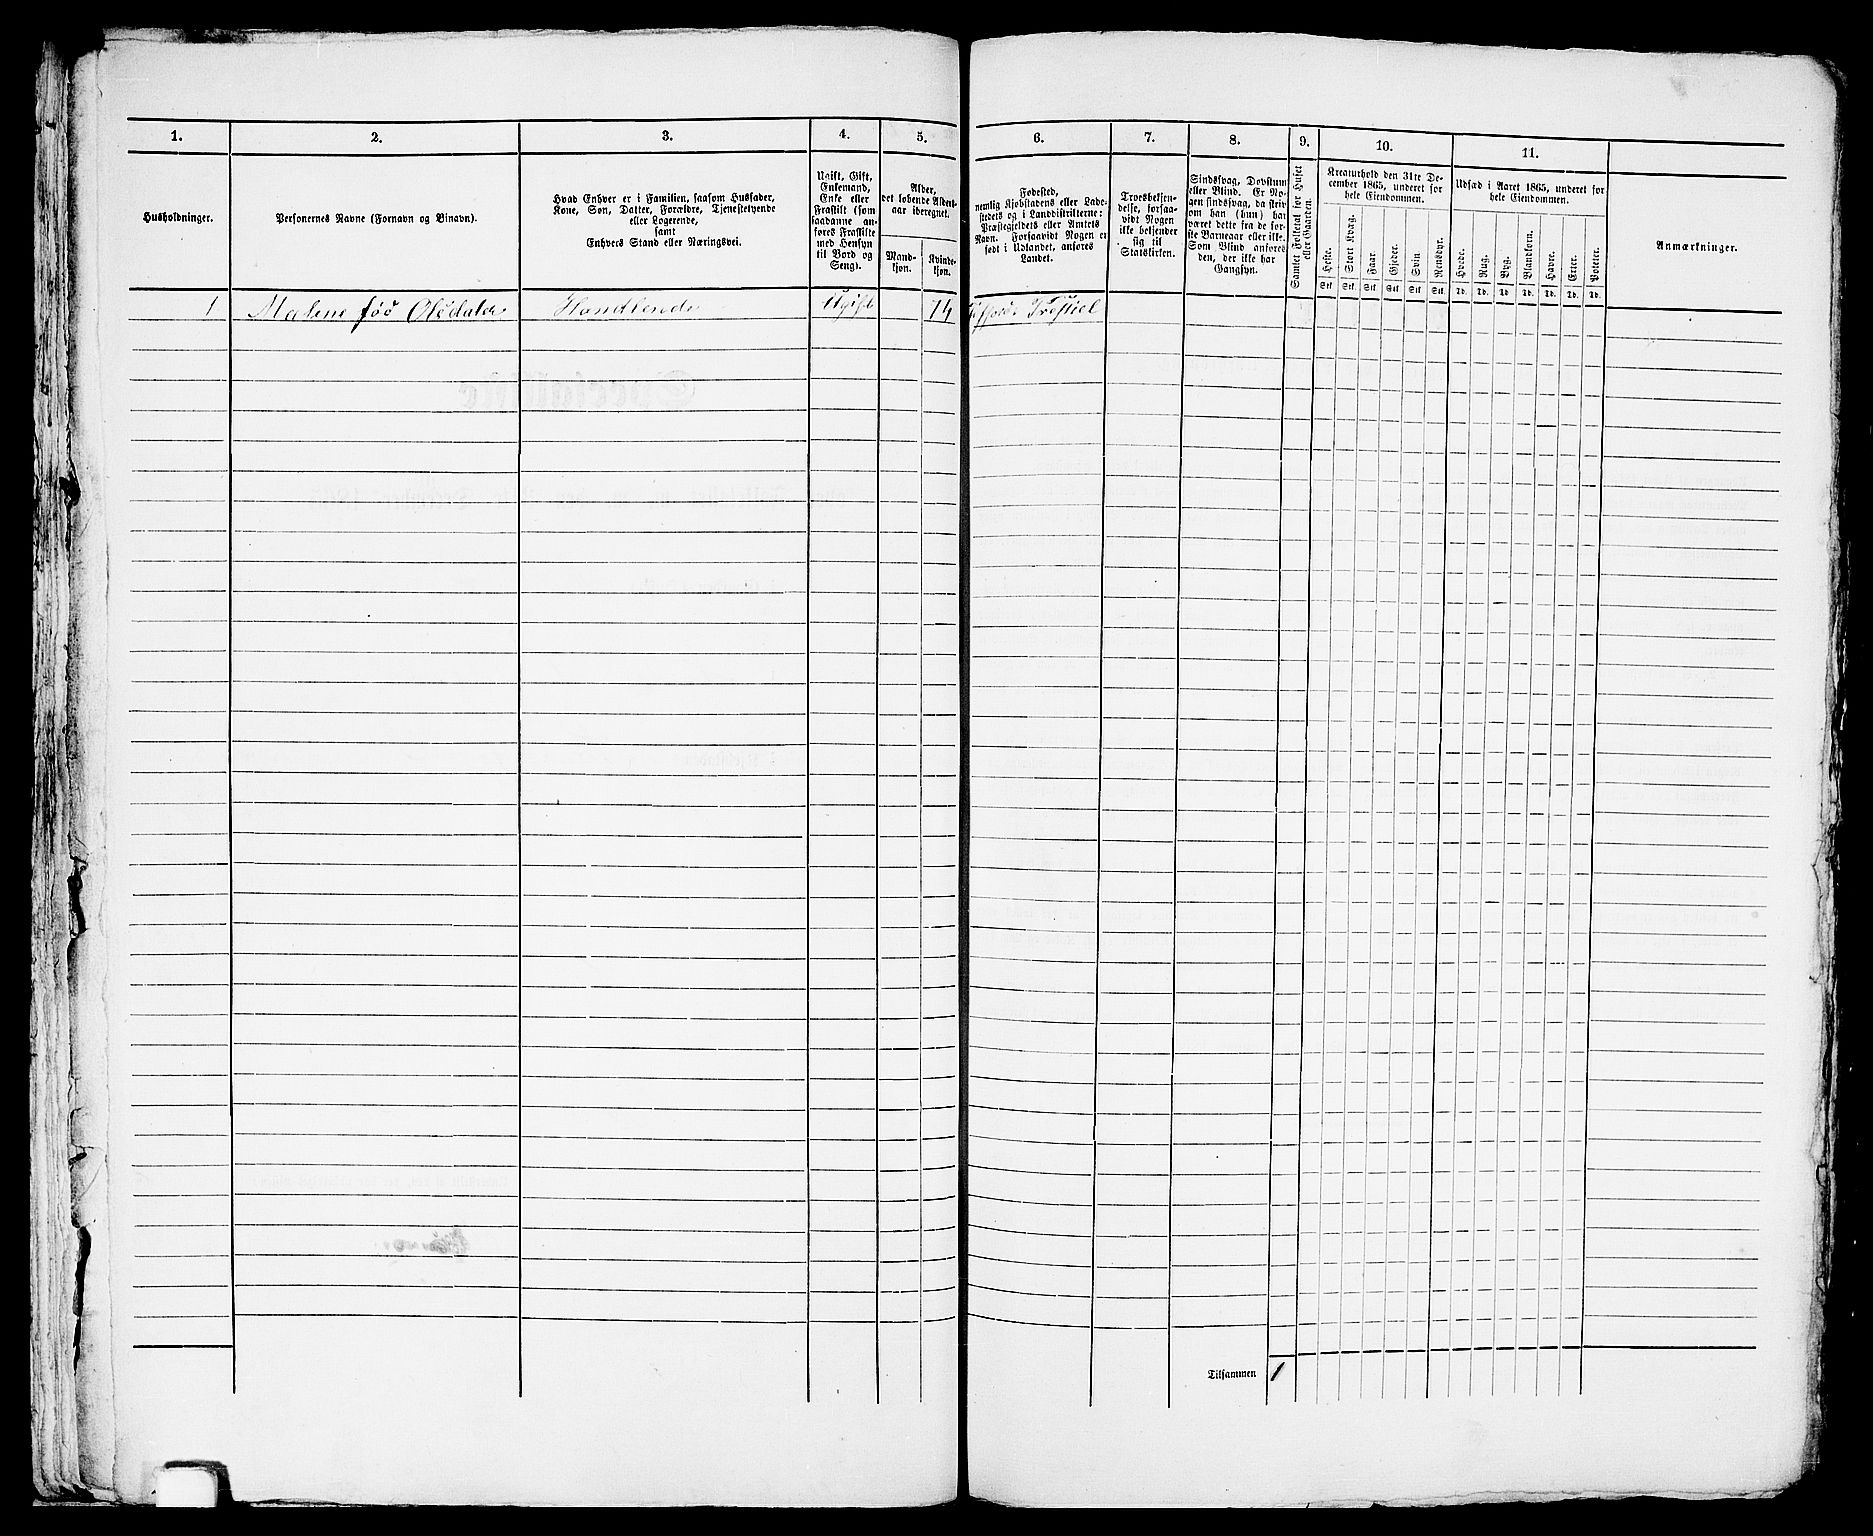 1. 2. 3. 4. 5. 6. 7. 8. 9. 10. 11.
Husholdninger.
Personernes Navne (Fornavn og Binavn).
Hvad Enhver er i Familien, saasom Husfader,
Kone, Søn, Datter, Forældre, Tjenestetyende
eller Logerende,
samt
Enhvers Stand eller Næringsvei.
Ugift, Gift,
Enkemand,
Enke eller
Fraskilt (som
saadanne an-
føres Fraskilte
med Hensyn
til Bord og
Seng).
Alder,
det løbende Alders-
aar iberegnet.
Mand-
kjøn.
Kvinde-
kjøn.
Fødested,
nemlig Kjøbstadens eller Lade-
stedets og i Landdistrikterne:
Præstegjeldets eller Amtets
Navn. Forsaavidt Nogen er
født i Udlandet, anføres
Landet.
Troesbekjen-
delse, forsaa-
vidt Nogen
ikke bekjender
sig til
Statskirken.
Sindssvag, Døvstum
eller Blind. Er No-
gen sindssvag, da skriv
om han (hun) har
været dette fra de før-
ste Barneaar eller ikke.
Som Blind anføres
den, der ikke har
Gangsyn.
Samlet Folketal for Huset
eller Gaarden.
Kreaturhold den 31te De-
cember 1865, underet for
hele Eiendommen.
Heste.
Stort Kvæg.
Faar.
Gjeder.
Svin.
Rensdyr.
Stk. Stk. Stk. Stk. Stk. Stk.
Udsæd i Aaret 1865, underet for
hele Eiendommen.
Hvede.
Rug.
Byg.
Blandkorn.
Havre.
Erter.
Poteter.
Td. Td. Td. Td. Td. Td. Td.
Anmærkninger.
1 Malene Olsdatter Handlende Ugift
Tilsammen 1